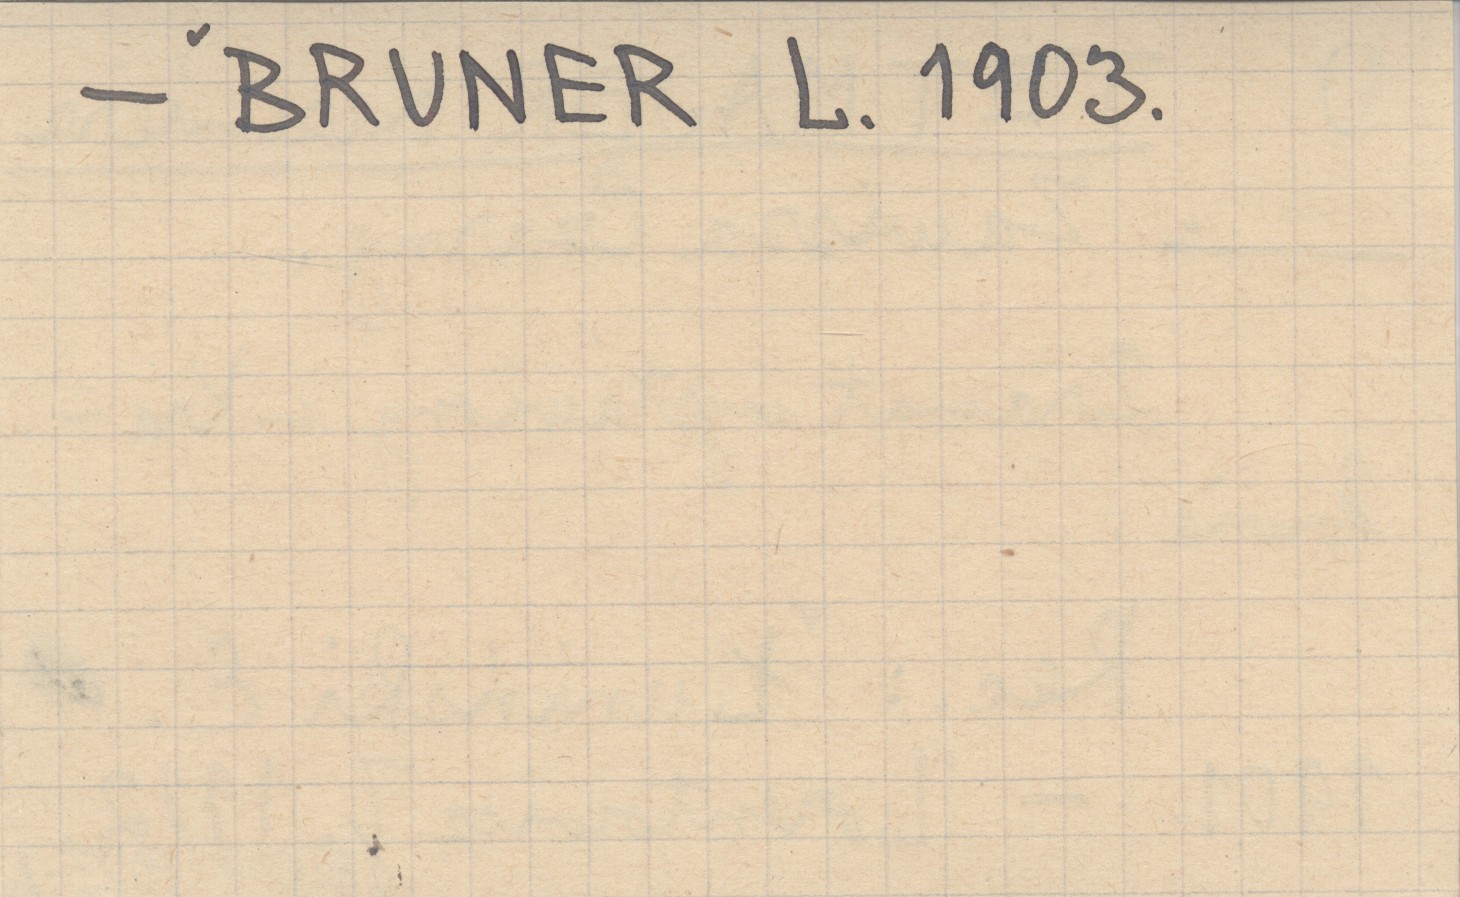 — BRUNER L. 1903.